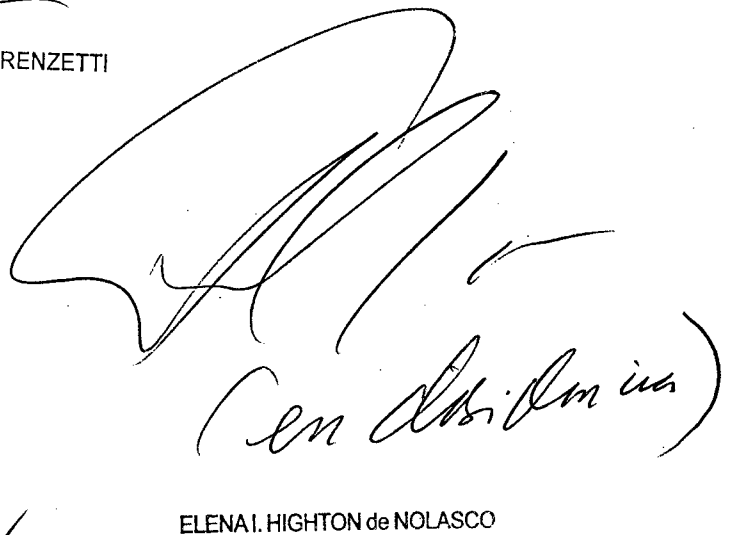 RENZETTI
(en disidencia)
ELENA I. HIGHTON de NOLASCO